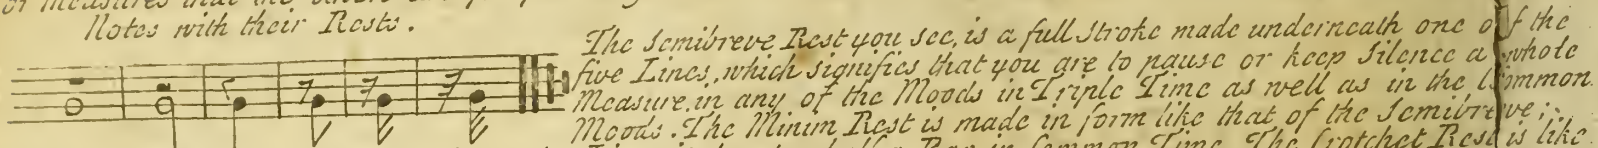 Notes with their Rests.
The Semibreve Rest you see, is a full Stroke made underneath one of the
five Lines, which signifies that you are to pause or keep Silence a whole
Measure, in any of the Moods in Triple Time as well as in the Common
Moods. The Minim Rest is made in form like that of the Semibreve;
Common Time. The Crotchet Rest is like